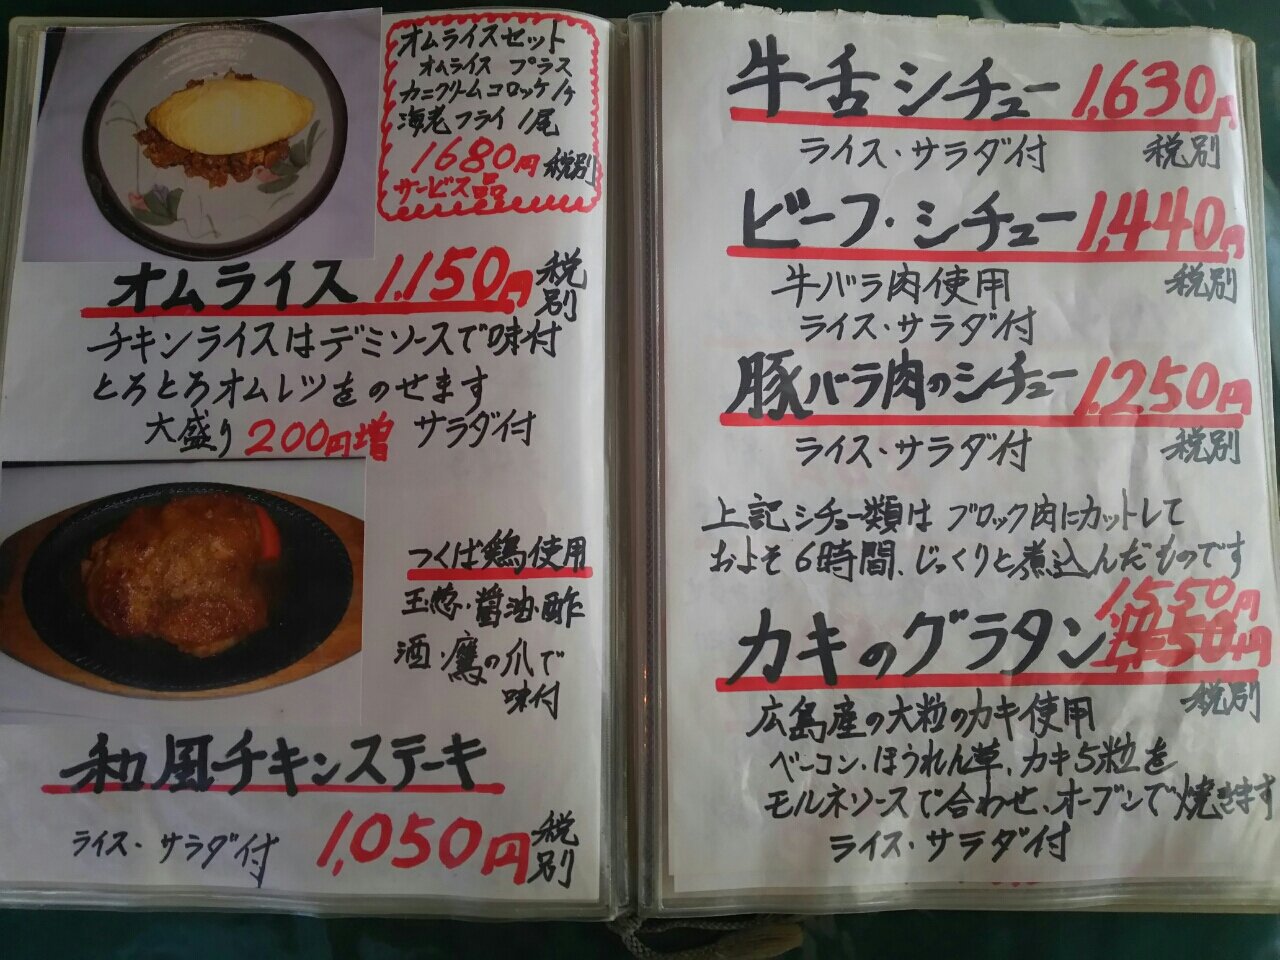 オムライスセット
オムライス プラス
カニクリームコロッケ1ヶ
海老フライ1尾
1680円税別
サービス品
オムライス 1,150円税別
チキンライスはデミソースで味付
とろとろオムレツをのせます
大盛り200円増 サラダ付
つくば鶏使用
玉葱・醤油・酢
酒・鷹の爪で
味付
和風チキンステーキ
ライス・サラダ付 1,050円税別
牛舌シチュー 1,630円
ライス・サラダ付 税別
ビーフ・シチュー 1,440円
牛バラ肉使用 税別
ライス・サラダ付
豚バラ肉のシチュー 1,250円
ライス・サラダ付 税別
上記シチュー類は ブロック肉にカットして
およそ6時間、じっくりと煮込んだものです
1,550円
カキのグラタン
税別
広島産の大粒のカキ使用
ベーコン・ほうれん草、カキ5粒を
モルネソースで合わせ、オーブンで焼きます
ライス・サラダ付